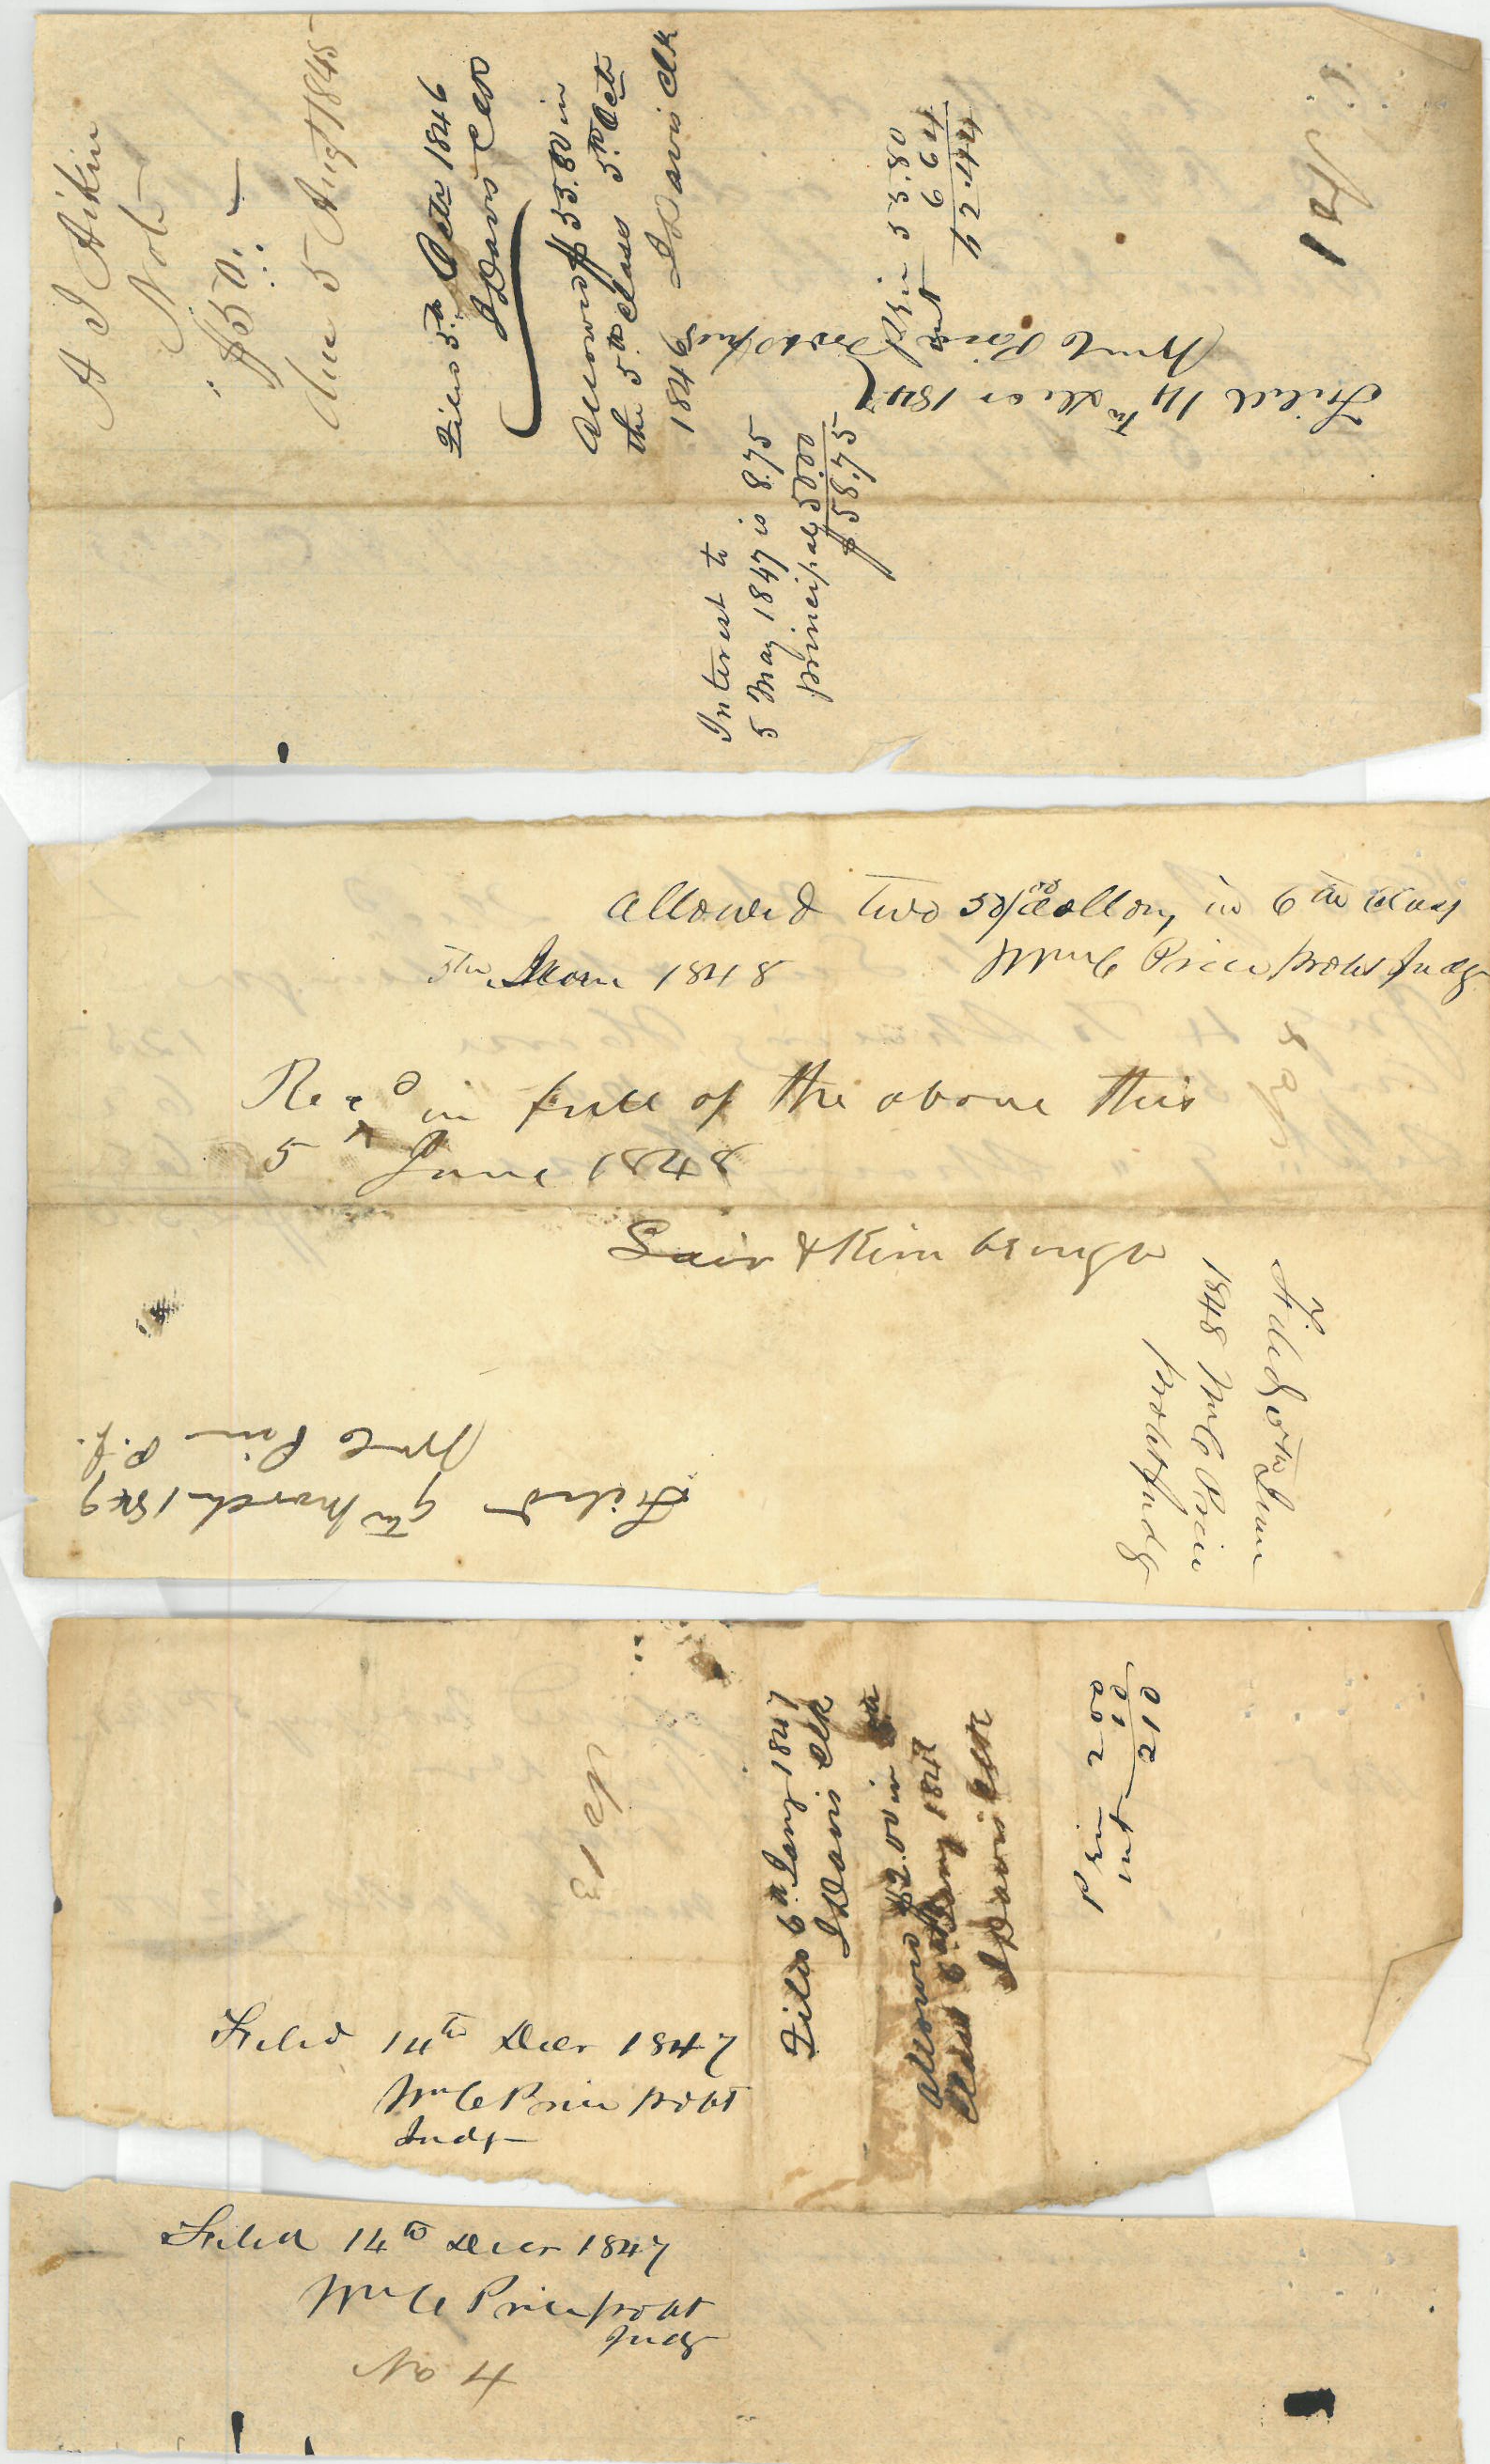 A I Aikin
Note
$50.
due 5 Augt 1845
Filed 5th Octr 1846
J Davis Clk
Allowed $53.80 in
the 5th Class 5th Octr
1846 J Davis Clk
Interest to
5 May 1847 is 8.75
principal 50.00
$58.75
Prin 53.80
int
62.44
Filed 14th Decr 1847
Wm C Price Probt Jud
No 1
Allowed two 50/100 dollars in 6th Class
5th June 1848 Wm C Price Probt Judg
Recd in full of the above this
5th June 1848
Lair & Kimbrough
Filed 5th June
1848 Wm C Price
Probt Judg
Filed 9th March 1849
Wm C Price P. J.
No 3
Filed 6th Jany 1847
J Davis Clk
Allowed $2.00 in
Class 6th Jany 1847
J Davis Clk
Prin 2 00
int 10
2 10
Filed 14th Decr 1847
Wm C Price Probt
Judg
Filed 14th Decr 1847
Wm C Price Probt
Judg
No 4